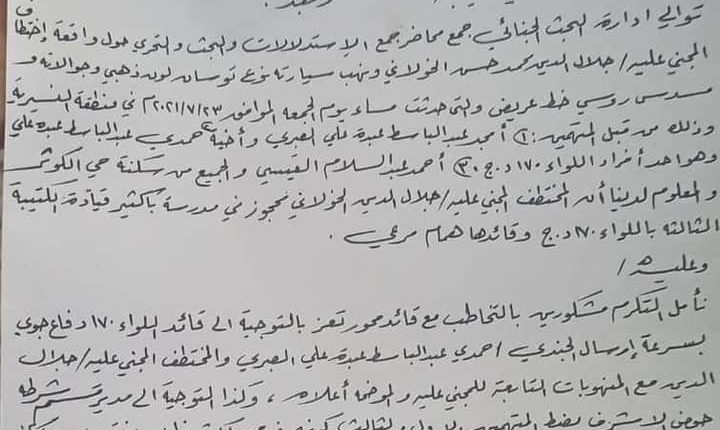 توالي ادارة البحث الجنائي جمع محاضر جمع الاستدلالات والبحث والتحري حول واقعة إختطاف
المجني عليه / جلال الدين محمد حسن الخولاني ونهب سيارته نوع توسان لون ذهبي وجوالاته و
مسدس روسي خط عريض والتي حدثت مساء يوم الجمعه الموافق ٢٠٢١/٧/٢٣م في منطقة النسيرية
وذلك من قبل المتهمين: ١) أمجد عبدالباسط عبدة علي الصبري وأخية ٢) حمدي عبدالباسط عبده علي
وهو احد أفراد اللواء ١٧٠ د.ج ٣) أحمد عبدالسلام القيسي و الجميع من سكنة حي الكوثر
و المعلوم لدينا أن المختطف المجني عليه / جلال الدين الخولاني محجوز في مدرسة باكثير قيادة الكتيبة
الثالثه باللواء ١٧٠ د.ج وقائدها همام مرعي .
وعليه /
نأمل التكرم مشكورين بالتخاطب مع قائد محور تعز بالتوجية الى قائد اللواء ١٧٠ دفاع جوي
بسرعة إرسال الجندي / حمدي عبدالباسط عبدة علي الصبري والمختطف المجني عليه / جلال
الدين مع المنهوبات التابعة للمجني عليه والموضحة أعلاه ، وكذا التوجية الى مدير قسم شرطة
حوض الاشرف بضبط المتهمين الاول والثالث